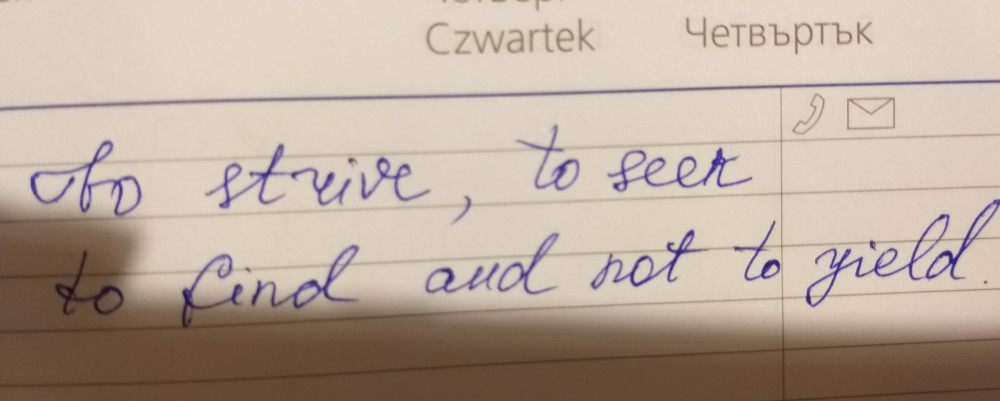 Czwartek Четвъртък
To strive, to seek
to find and not to yield.